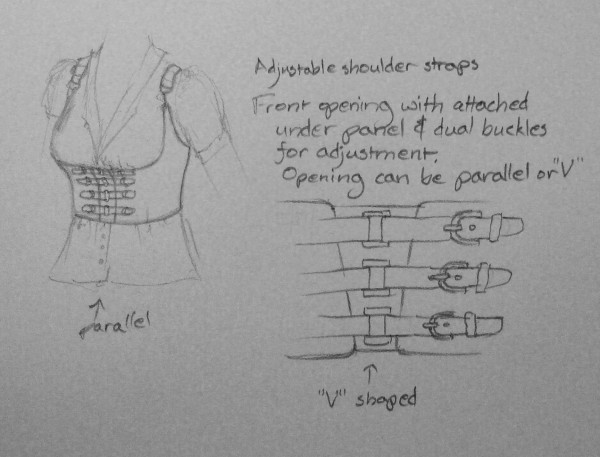 Adjustable shoulder straps
Front opening with attached
under panel & dual buckles
for adjustment.
Opening can be parallel or "V"
parallel
"V" shaped